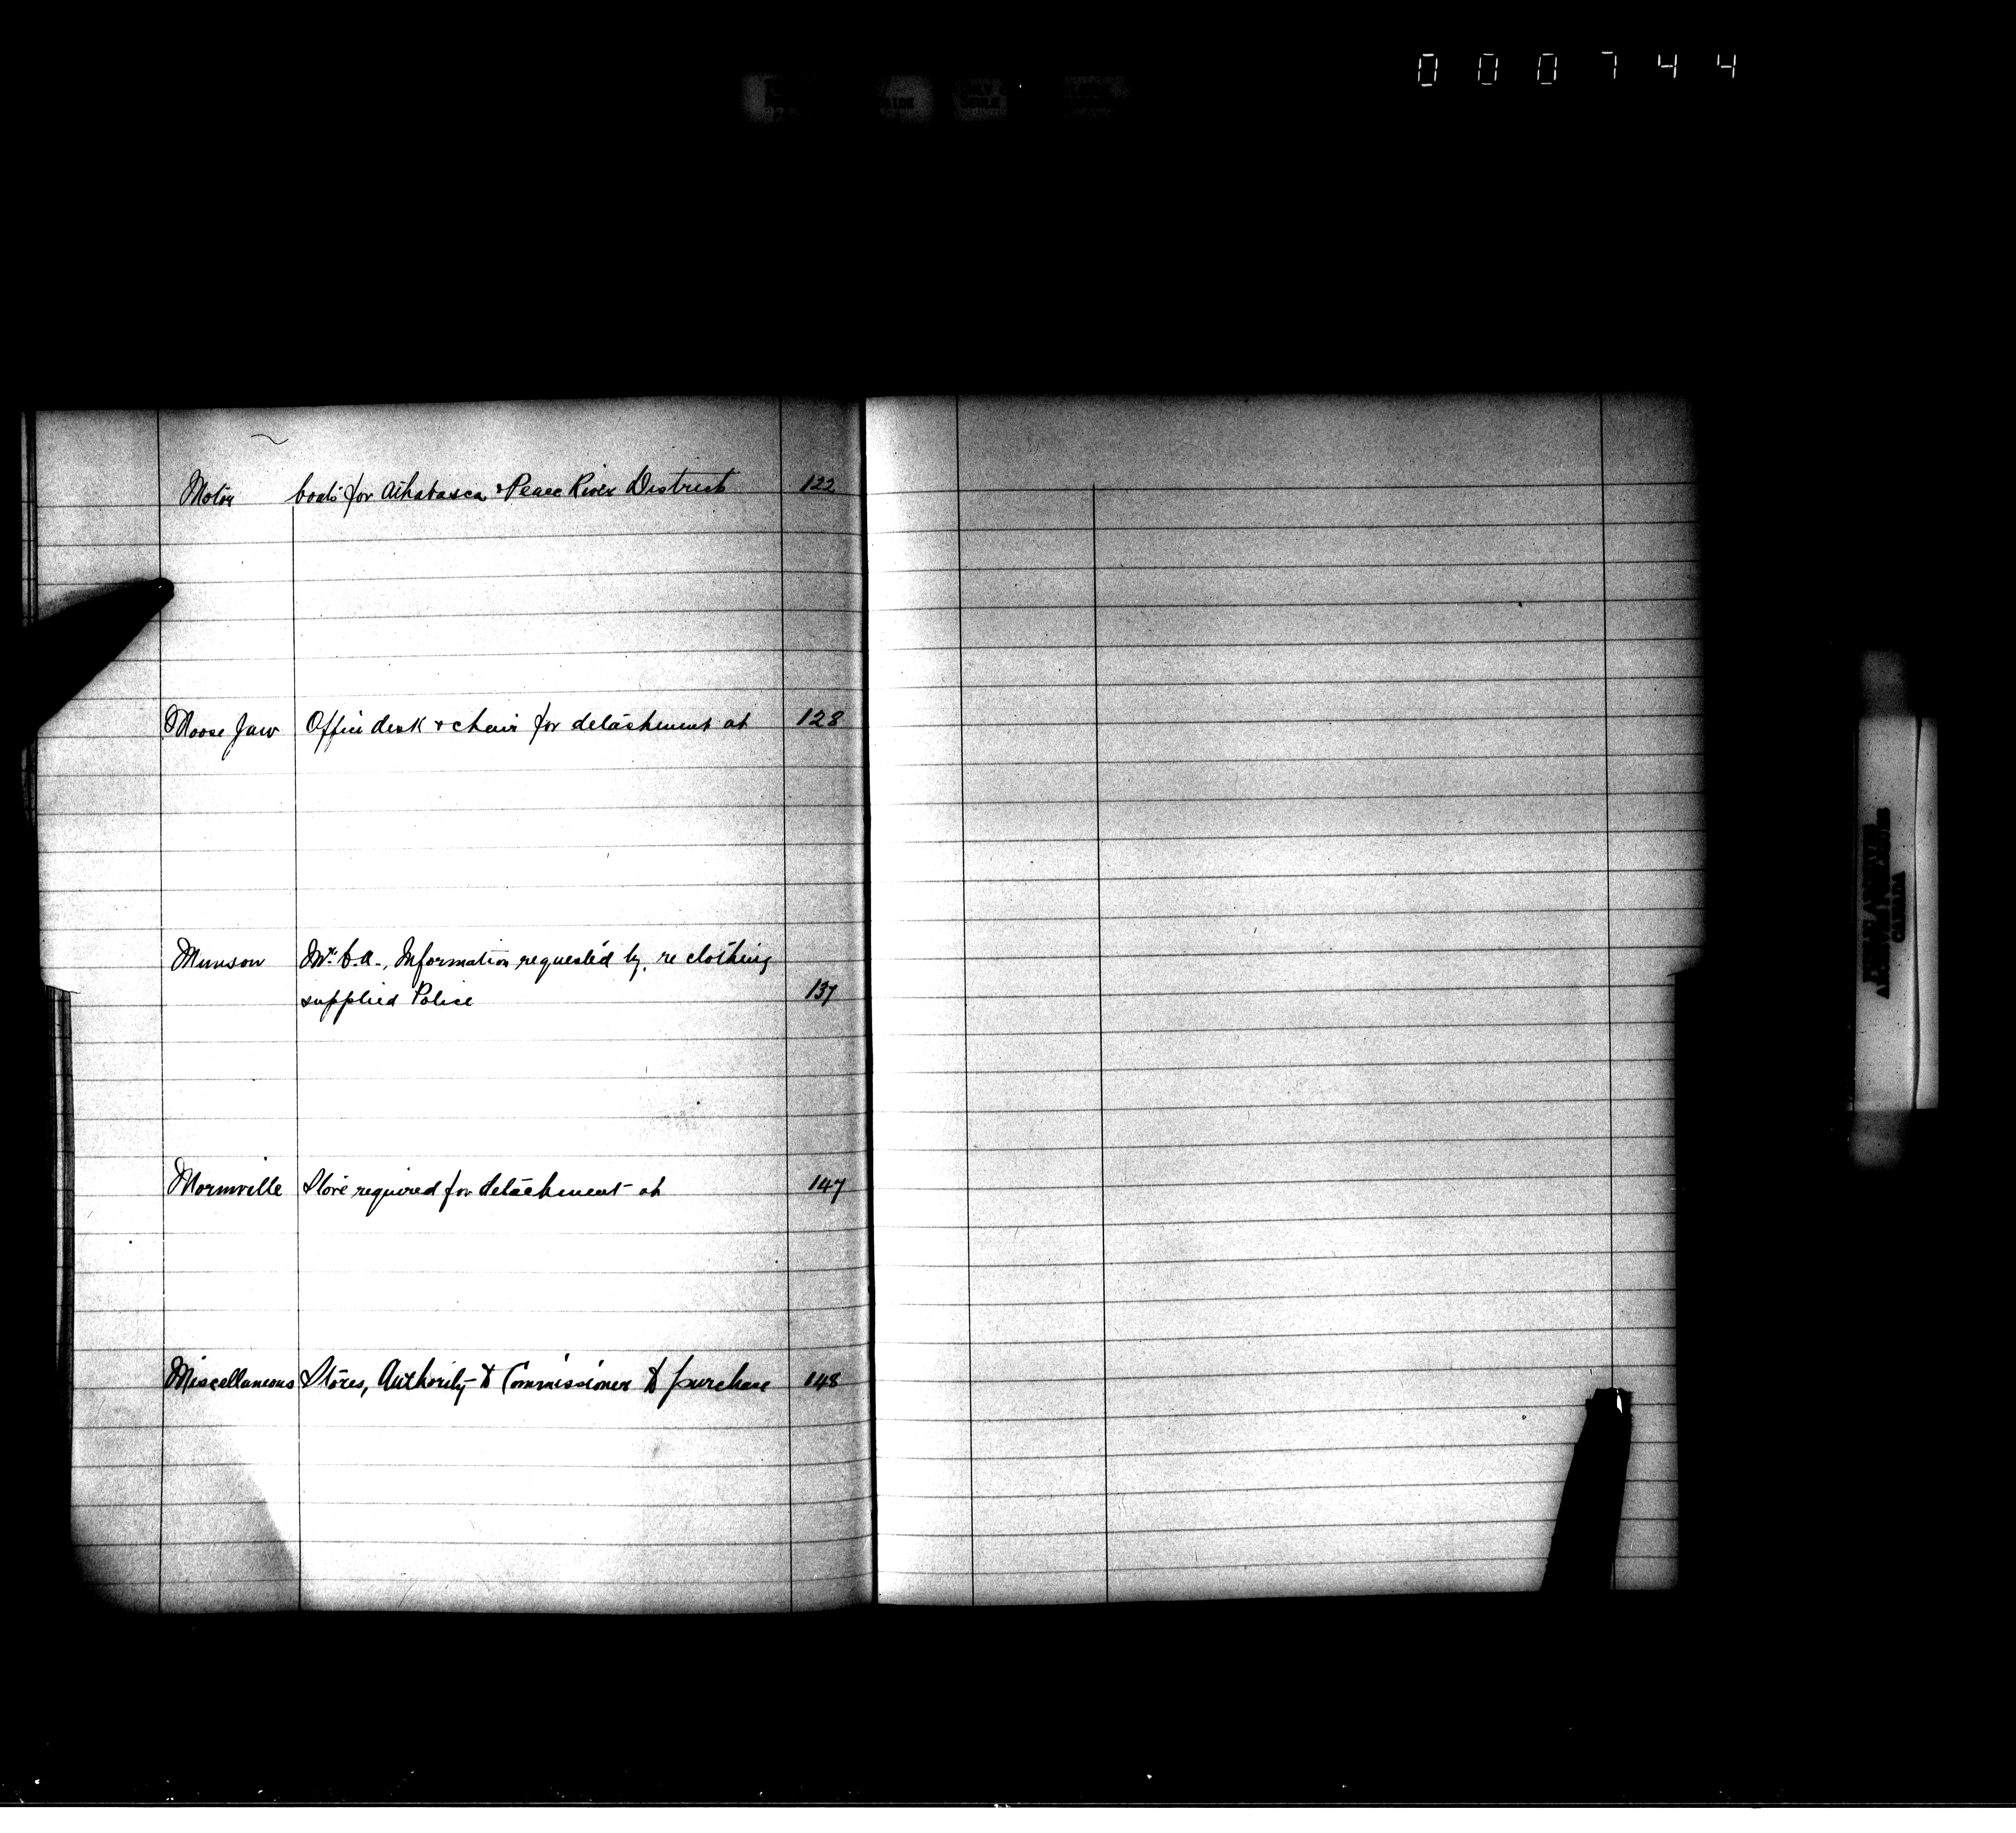 000744
Motor boats for Athabasca & Peace River District 122
Moose Jaw Office desk & chair for detachment at 128
Munson Mr. C.A., Information requested by, re clothing
supplied Police 137
Morinville Stove required for detachment at 147
Miscellaneous Stores, Authority to Commissioner to purchase 148
CANADA